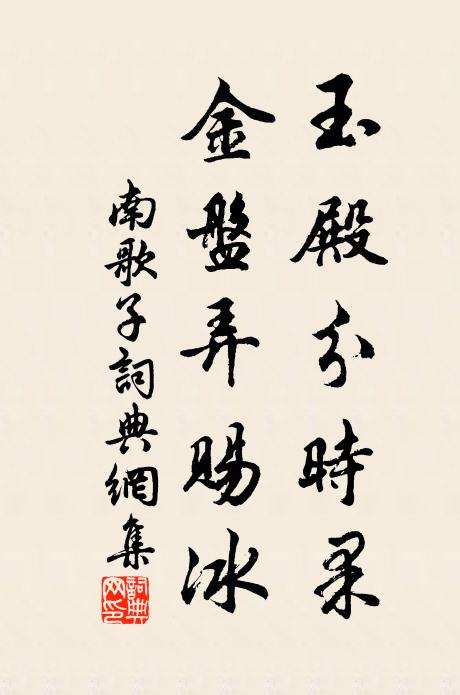 玉殿分時果
金盤弄賜冰
南歌子詞典網集
詞典網印